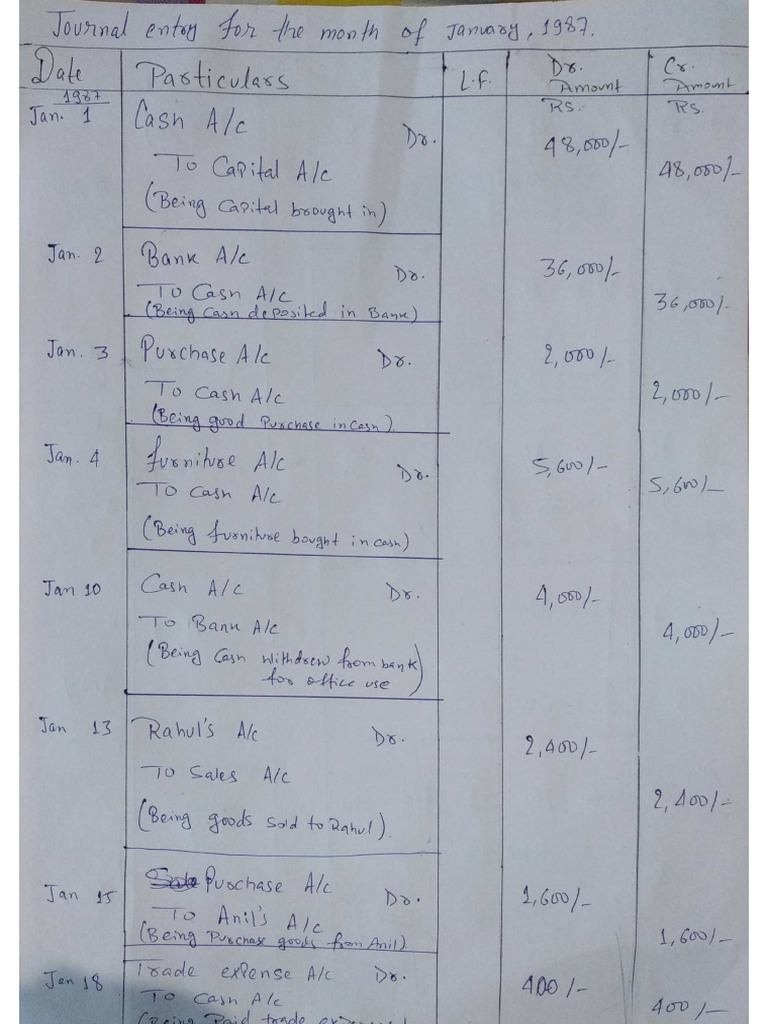 Journal entry for the month of January, 1987.
Date Particulars L.F. Dr. Amount Cr. Amount
1987 Rs. Rs.
Jan. 1 Cash A/c Dr. 48,000/-
To Capital A/c 48,000/-
(Being Capital brought in)
Jan. 2 Bank A/c Dr. 36,000/-
To Cash A/c 36,000/-
(Being Cash deposited in Bank)
Jan. 3 Purchase A/c Dr. 2,000/-
To Cash A/c 2,000/-
(Being good Purchase in Cash)
Jan. 4 furniture A/c Dr. 5,600/-
To Cash A/c 5,600/-
(Being furniture bought in cash)
Jan 10 Cash A/c Dr. 4,000/-
To Bank A/c 4,000/-
(Being Cash withdrew from bank
for office use)
Jan 13 Rahul's A/c Dr. 2,400/-
To Sales A/c 2,400/-
(Being goods Sold to Rahul).
Jan 15 Purchase A/c Dr. 1,600/-
To Anil's A/c 1,600/-
(Being Purchase goods from Anil)
Jan 18 Trade expense A/c Dr. 400/-
To Cash A/c 400/-
(Being Paid trade